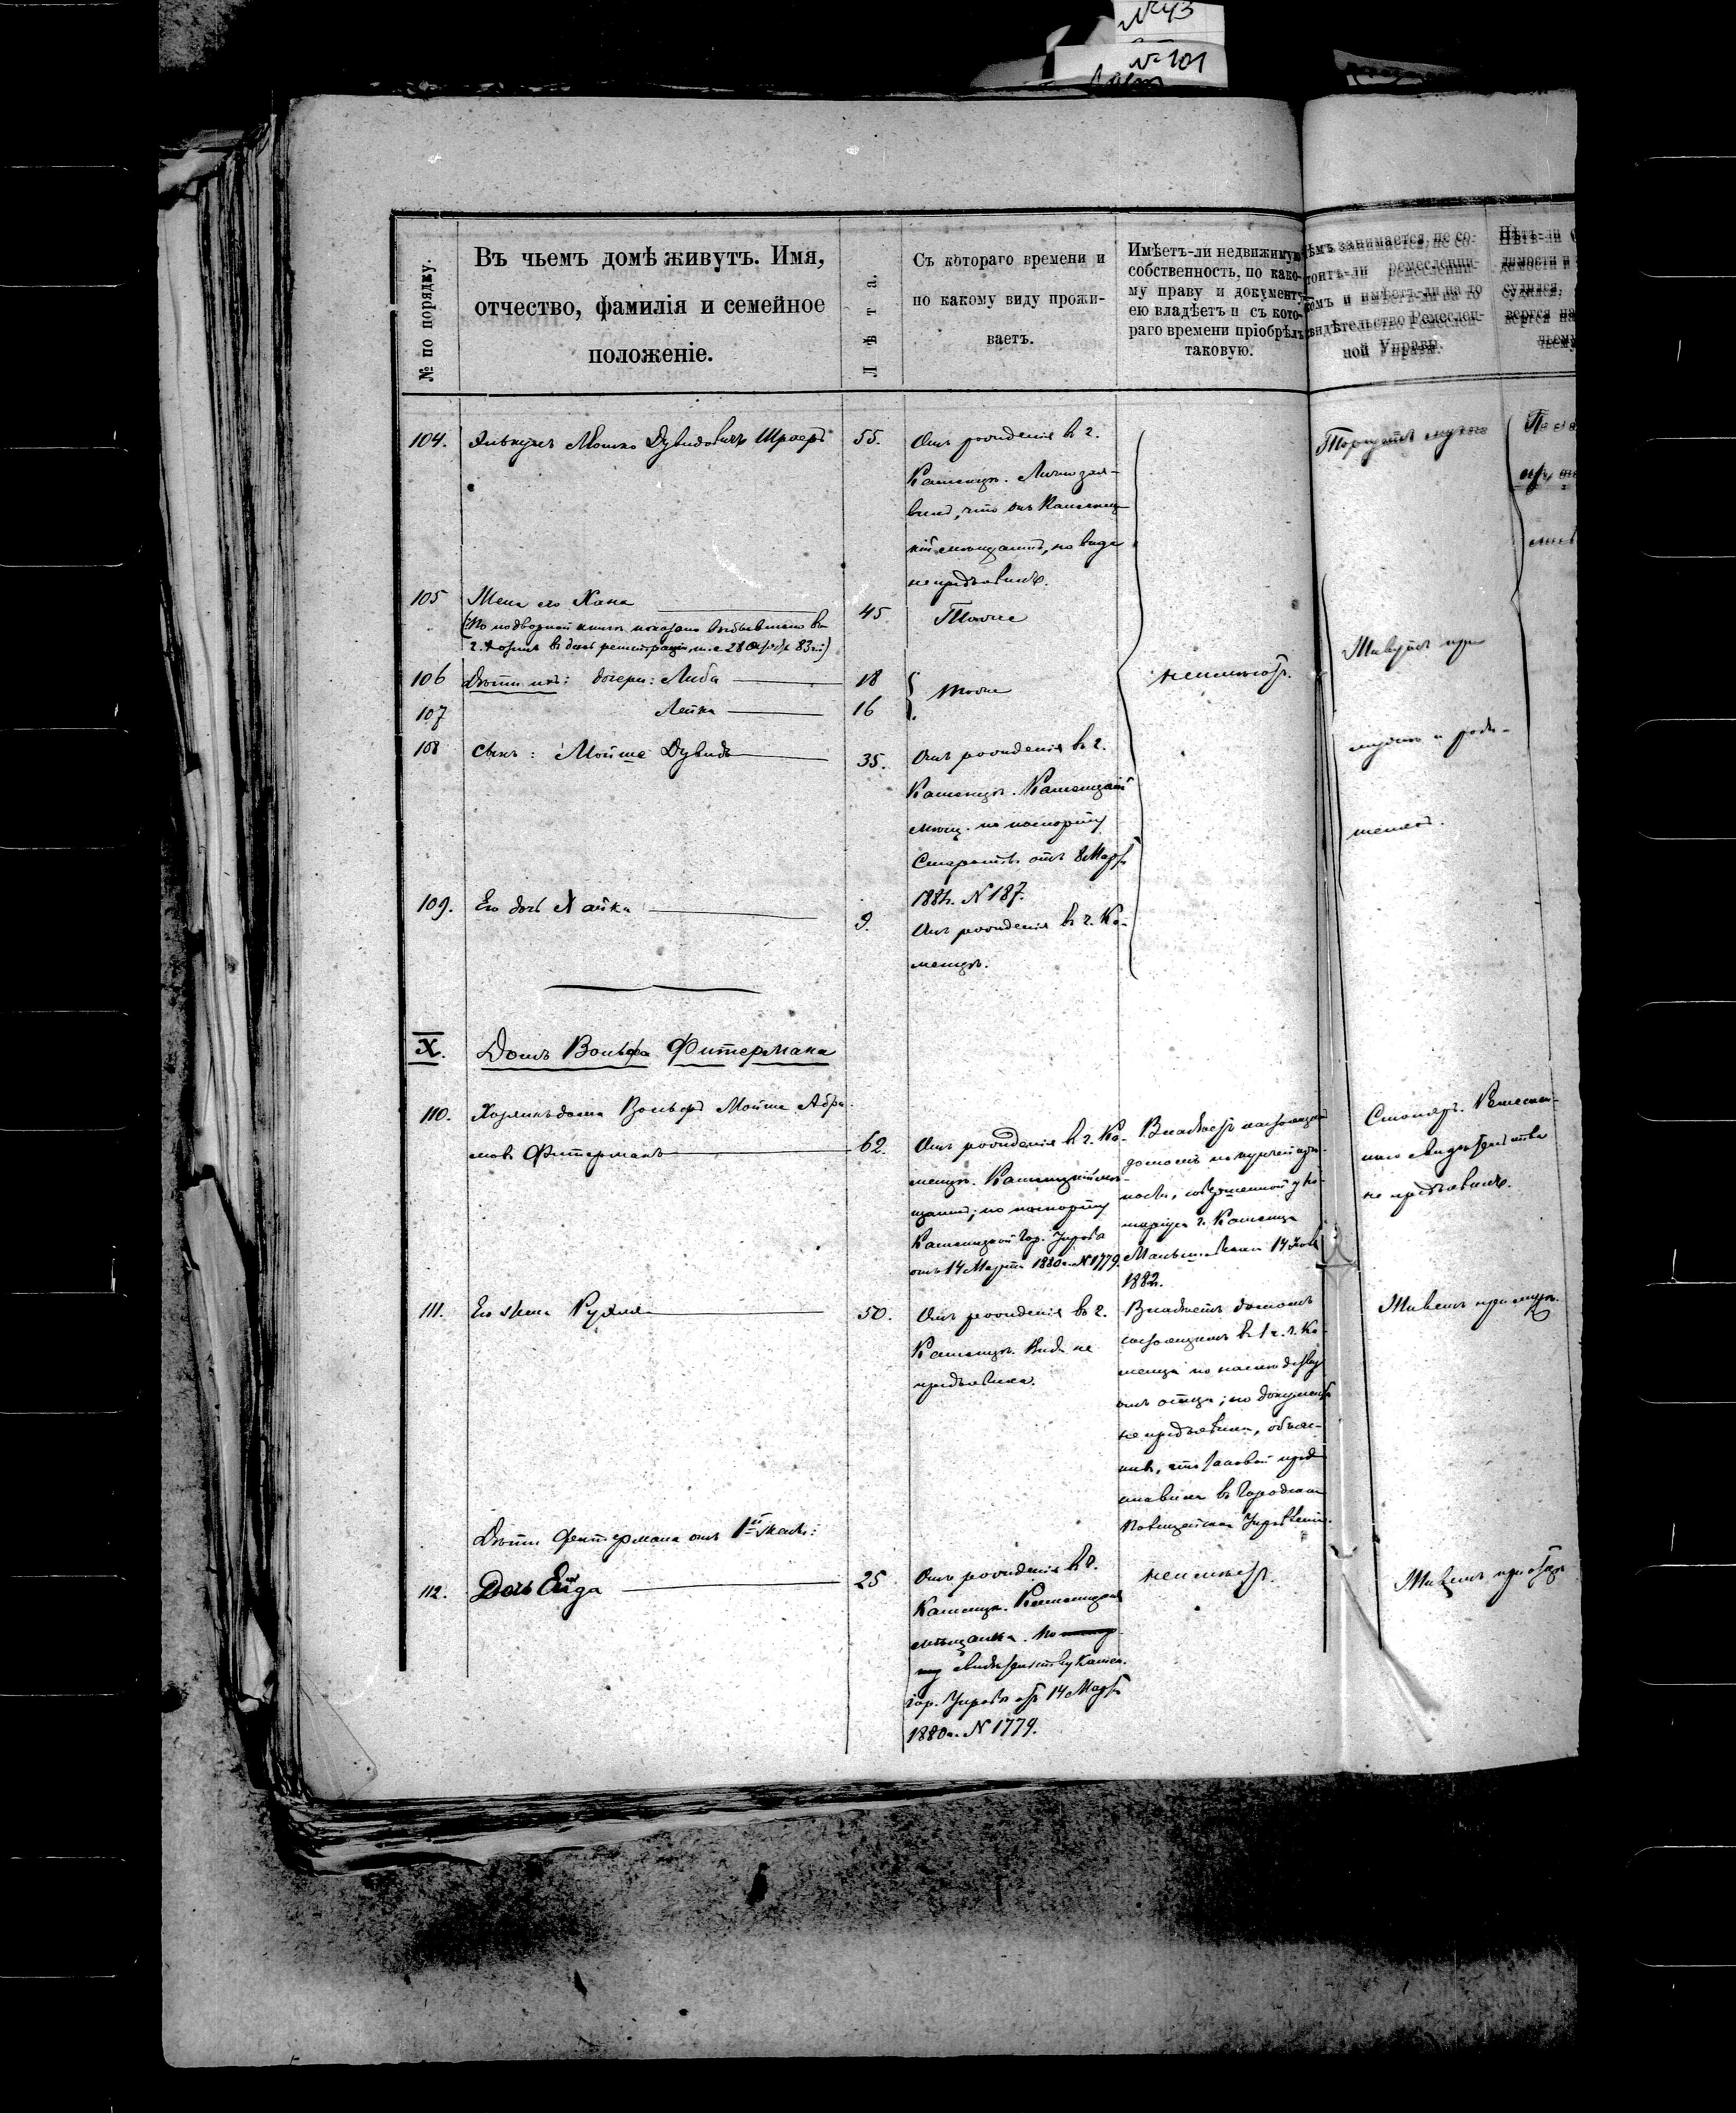 № 43
№ 101
№ по порядку.
Въ чьемъ домѣ живутъ. Имя,
отчество, фамилія и семейное
положеніе.
Лѣта.
Съ котораго времени и
по какому виду прожи-
ваетъ.
Имѣетъ-ли недвижимую
собственность, по како-
му праву и документу
ею владѣетъ и съ кото-
раго времени пріобрѣлъ
таковую.
Чѣмъ занимается, не со-
стоитъ-ли ремесленни-
комъ и имѣетъ-ли на то
свидѣтельство Ремеслен-
ной Управы.
Нѣтъ-ли
димости и
судился,
вергся на
чьему
104.
Мошко Дувидовичъ Шроеръ
55.
Отъ рожденія въ г.
Каменцѣ. Лично зая-
вилъ, что онъ Каменец-
кій мѣщанинъ, но вида
не предъявилъ.
105
Жена его Хана
(По подворной книгѣ показана выбывшею въ
г. въ день регистраціи, т. е. 28 Октября 83 г.)
45
Тоже
106
Дѣти ихъ: дочери: Либа
18
тоже
неимѣетъ.
Живутъ при
107
Лейка
16
108
сынъ: Мойше Дувидъ
35.
Отъ рожденія въ г.
Каменцѣ. Каменецкій
мѣщ. по паспорту
Старосты отъ 8 Марта
1884. N 187.
мужѣ и роди-
теляхъ.
109.
Его дочь Хайка
9.
Отъ рожденія въ г. Ка-
менцѣ.
X.
Домъ Вольфа Фитермана
110.
Хозяинъ дома Вольфъ Мойше Абра-
мовъ Фитерманъ
62.
Отъ рожденія въ г. Ка-
менцѣ. Каменецкій мѣ-
щанинъ; по паспорту
Каменецкой Гор. Управы
отъ 14 Марта 1880 г. N 1779.
Владѣетъ настоящимъ
домомъ по купчей крѣ-
пости, совершенной у но-
таріуса г. Каменца
14
1882.
Столяръ. Ремеслен-
наго свидѣтельства
не предъявилъ.
111.
Его жена Рухля
50.
Отъ рожденія въ г.
Каменцѣ. Вида не
предъявила.
Владѣетъ домомъ
состоящимъ въ 1 ч. г. Ка-
менца по наслѣдству
отъ отца; но документа
не предъявила, объяс-
нивъ, что таковой пред-
ставила въ Городское
Полицейское Управленіе.
Живетъ при мужѣ.
Дѣти Фитермана отъ 1й жены:
112.
Дочь Ейда
25
Отъ рожденія въ г.
Каменцѣ. Каменецкая
мѣщанка. По
свидѣтельству Камен.
Гор. Управы отъ 14 Марта
1880 г. N 1779.
неимѣетъ.
Живетъ при отцѣ